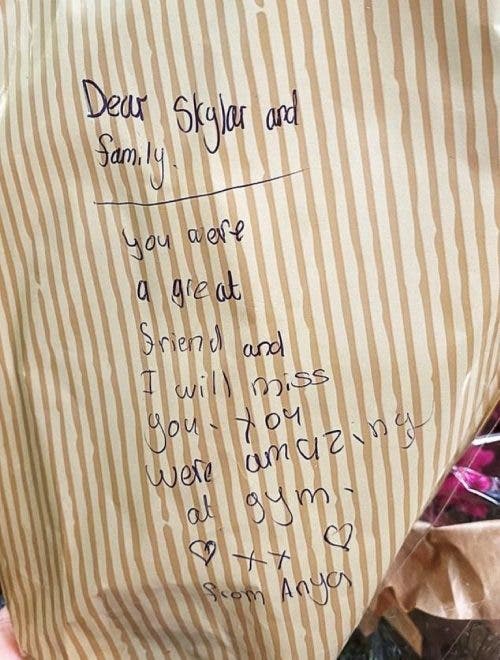 Dear Skylar and
family.
you were
a great
friend and
I will miss
you. you
were amazing
at gym.
♡ xx ♡
from Anya